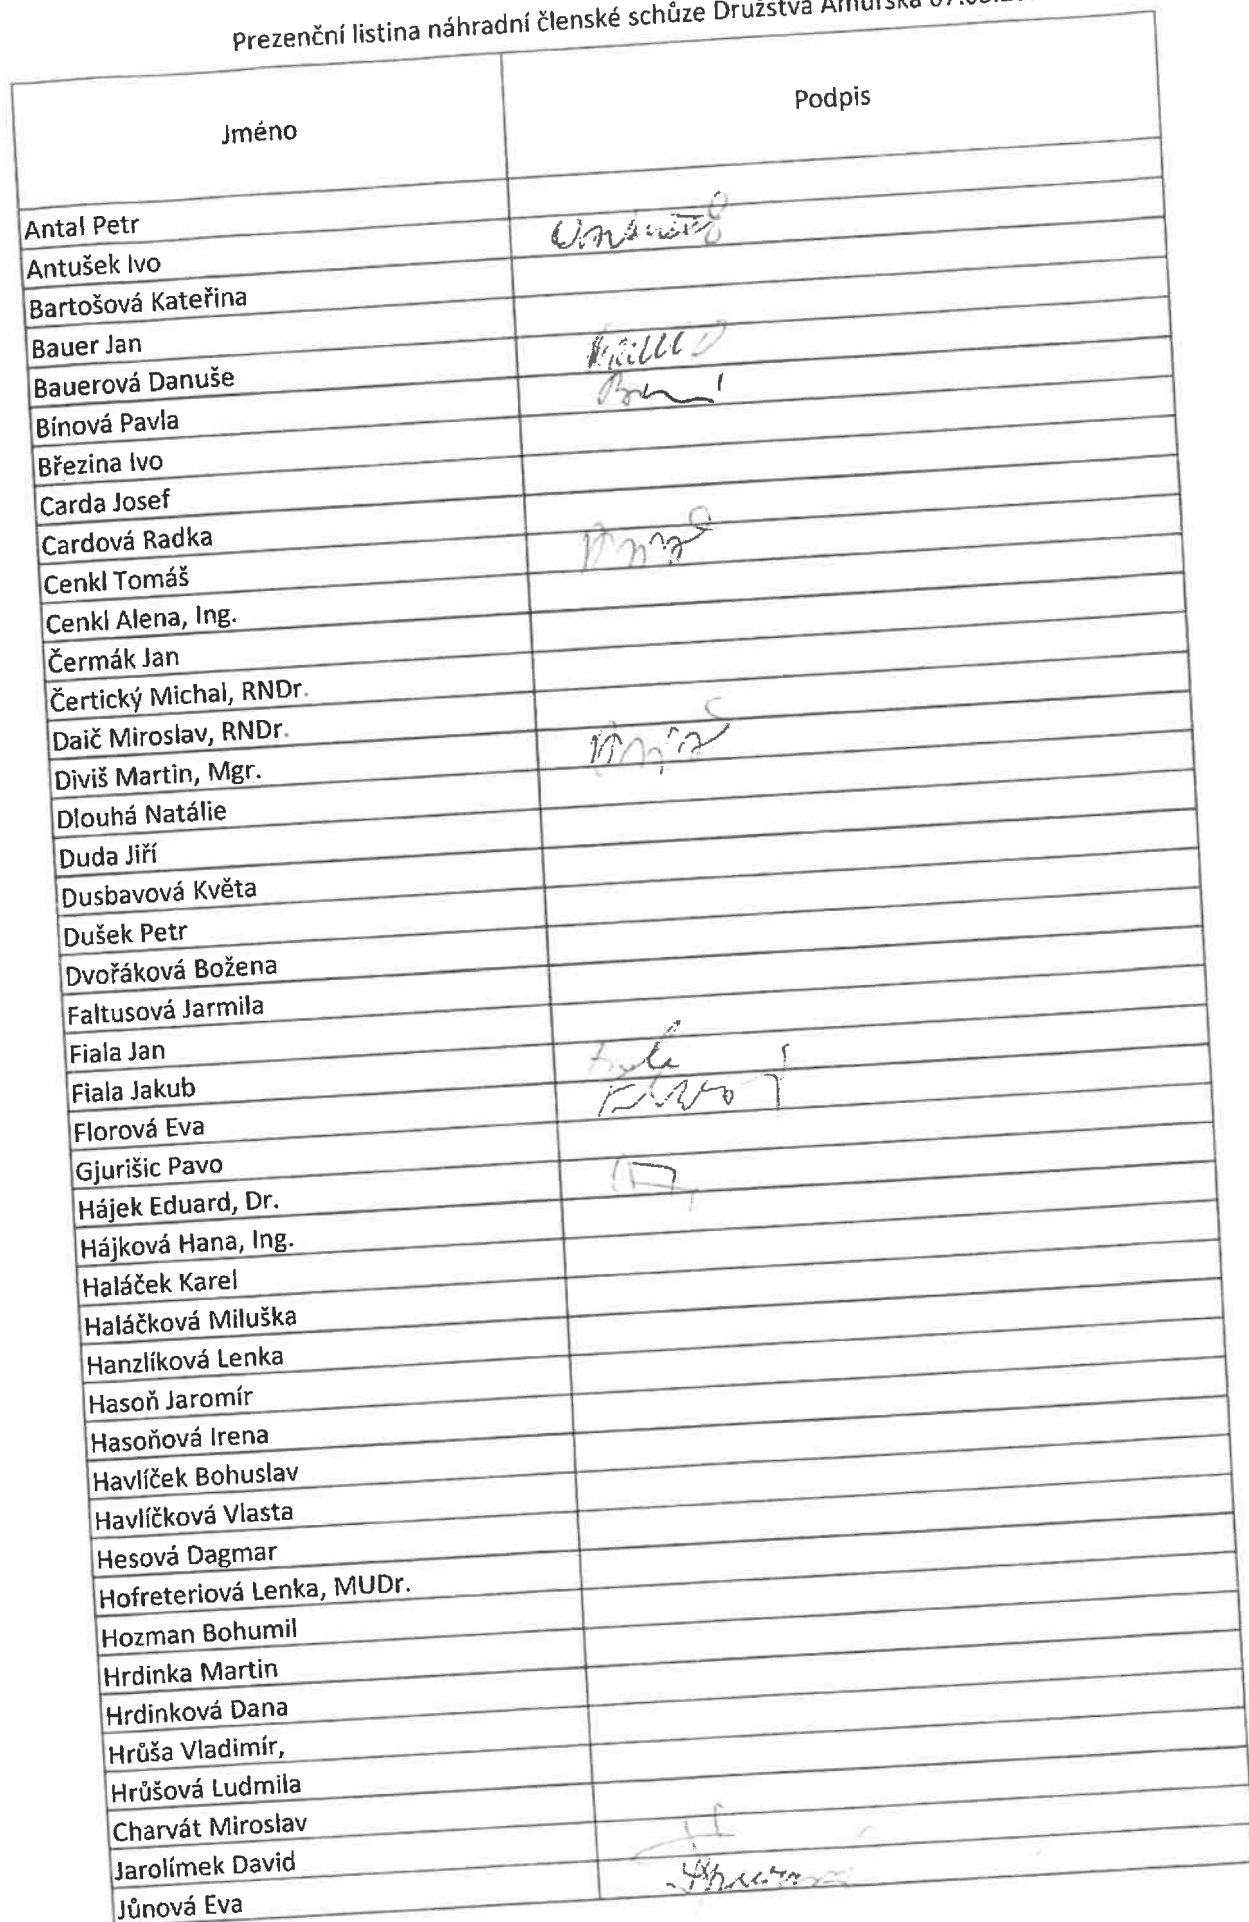 Prezenční listina náhradní členské schůze Družstva Amurská
Jméno
Podpis
Antal Petr
Antušek Ivo
Bartošová Kateřina
Bauer Jan
Bauerová Danuše
Bínová Pavla
Březina Ivo
Carda Josef
Cardová Radka
Cenkl Tomáš
Cenkl Alena, Ing.
Čermák Jan
Čertický Michal, RNDr.
Daič Miroslav, RNDr.
Diviš Martin, Mgr.
Dlouhá Natálie
Duda Jiří
Dusbavová Květa
Dušek Petr
Dvořáková Božena
Faltusová Jarmila
Fiala Jan
Fiala Jakub
Florová Eva
Gjurišic Pavo
Hájek Eduard, Dr.
Hájková Hana, Ing.
Haláček Karel
Haláčková Miluška
Hanzlíková Lenka
Hasoň Jaromír
Hasoňová Irena
Havlíček Bohuslav
Havlíčková Vlasta
Hesová Dagmar
Hofreteriová Lenka, MUDr.
Hozman Bohumil
Hrdinka Martin
Hrdinková Dana
Hrůša Vladimír,
Hrůšová Ludmila
Charvát Miroslav
Jarolímek David
Jůnová Eva